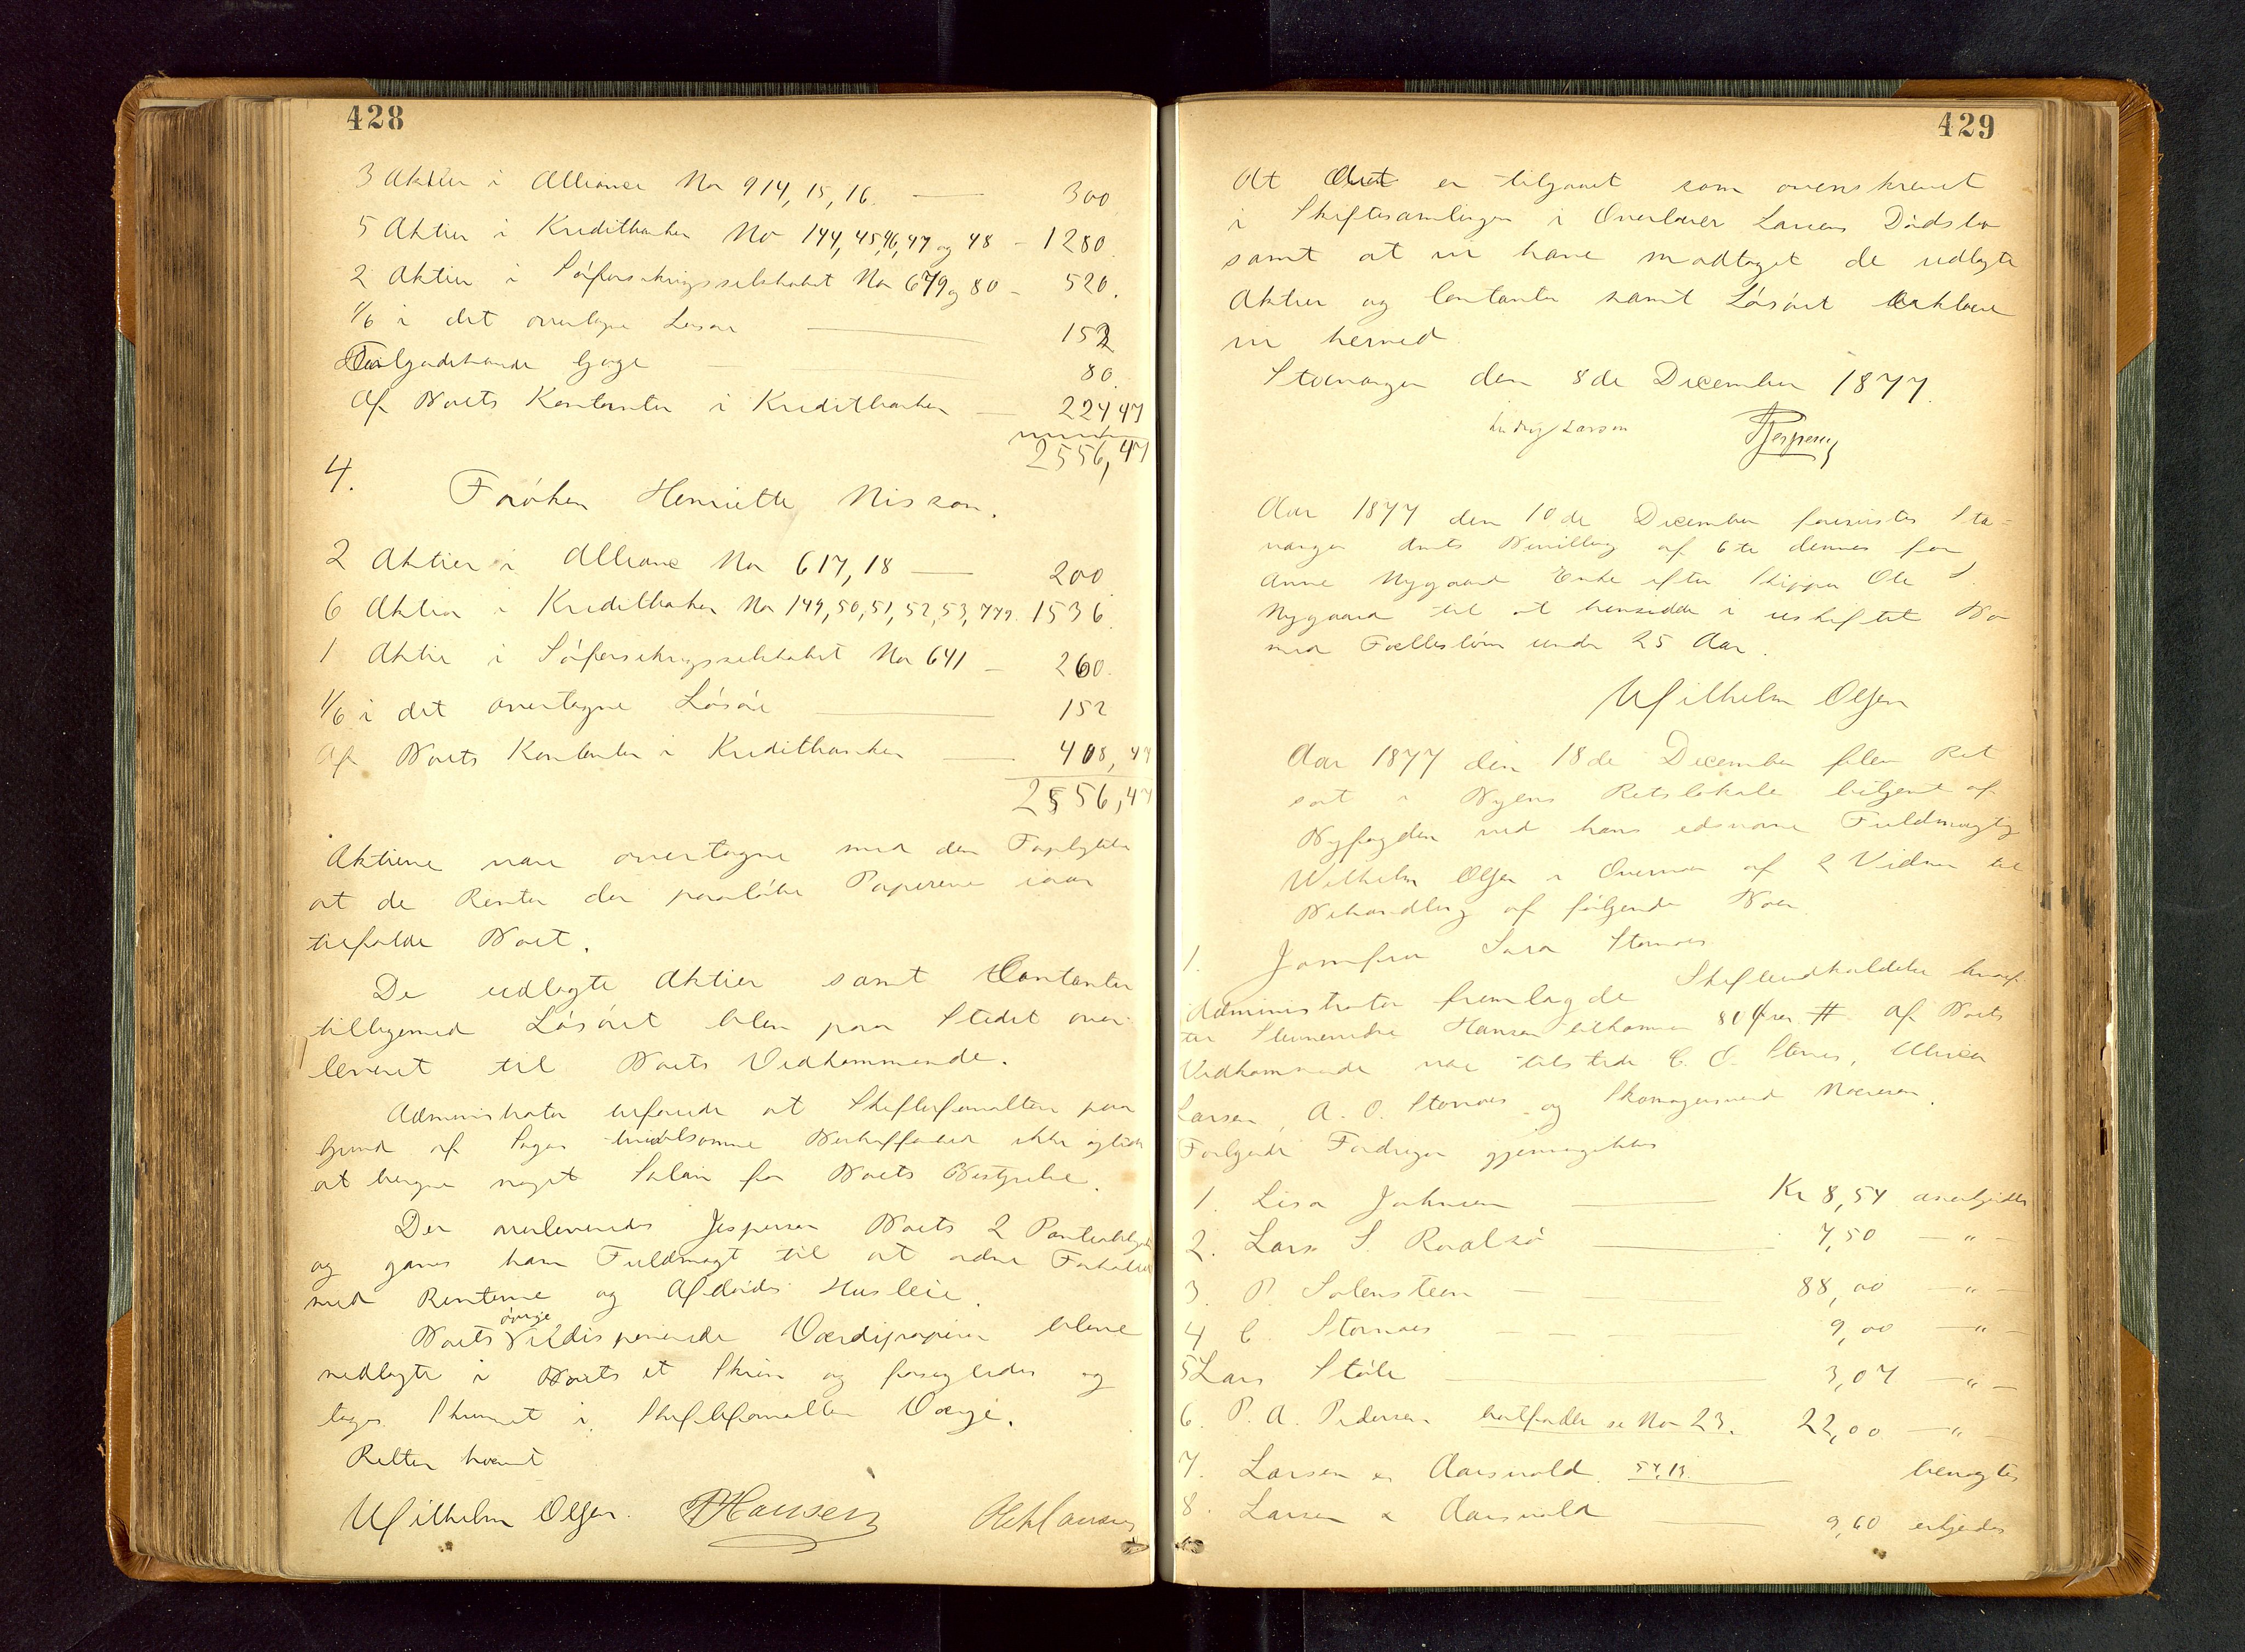 428
3 Aktier i Alliance No 914, 15, 16. — 300
5 Aktier i Kreditbanken No 144, 45, 46, 47 og 48 - 1280.
2 Aktier i Söforsikringsselskabet No 679 og 80 - 520.
1/6 i det overtagne Løsøre — 152
Tilgodehavende Gage — 80.
Af Boets Kontanter i Kreditbanken — 224 47
2556,47
4. Frøken Henriette Nisson.
2 Aktier i Alliance No 617, 18 — 200
6 Aktier i Kreditbanken No 149, 50, 51, 52, 53, 779. 1536.
1 Aktie i Söforsikringsselskabet No 641 — 260.
1/6 i det overtagne Løsøre — 152
Af Boets Kontanter i Kreditbanken — 408,47
2556,47
Aktierne var overtagne med den Forpligtelse
at de Renter der paaløbe Papirerne iaar
tilfalde Boet.
De udlagte Aktier samt Contanter
tilligemed Løsøret blev paa Stedet over-
leveret til Boets Vedkommende.
Administrator erfarede at Skifteforvalteren paa
Grund af Sagens Beskaffenhed ikke
at beregne noget Salær for Boets Bestyrelse.
Der overleveredes Jespersen Boets 2
og gaves ham Fuldmagt til at ordne Forholdet
med Renterne og Afdødes Husleie.
øvrige
Boets Værdipapirer bleve
nedlagte i Boets et Skrin og forsegledes og
toges Skrinet i Skifteforvalterens Værge.
Retten hævet
Wilhelm Olsen. Hansen
429
At Arvet er tilgaaet som ovenskrevet
i Skiftesamlingen i Overlærer Larsens Dødsbo
samt at vi have modtaget de udlagte
Aktier og Contanter samt Løsøret erklære
vi herved.
Stavanger den 8de December 1877.
Ludvig Larsen Jespersen
Aar 1877 den 10de December forevistes Sta-
vanger Amts Bevilling af 6te dennes for
Anne Nygaard Enke efter Skipper Ole S.
Nygaard til at hensidde i uskiftet Bo
med Fællesbørn under 25 Aar.
Wilhelm Olsen
Aar 1877 den 18de December blev Ret
sat i Byens Retslokale betjent af
Byfogden ved hans edsvorne Fuldmægtig
Wilhelm Olsen i Overvær af 2 Vidner til
Behandling af følgende Boer
1. Jomfru Sara Stornæs
Administrator fremlagde Skifteindkaldelse hvoref-
ter Stevnevidne Hansen tilkommer 80 Øre #. Af Boets
Vedkommende var tilstede C. O. Stornæs,
Larsen, A. O. Stornæs og Skomagersvend
Følgende Fordringer gjennemgikkes
1. Lisa Johnsen — Kr 8,54 anerkjendes
2. Lars S. Roalsø — 7,50 — " —
3. P. Solensteen — 88,00 — " —
4 C. Stornæs — 9,00 — " —
5 Lars Støle — 3,07 — " —
6. P. A. Pedersen bortfalder se No 23. 22,00 — " —
7. Larsen & Aarsvold 54,19. — benægtes
8. Larsen & Aarsvold — 9,60 erkjendes